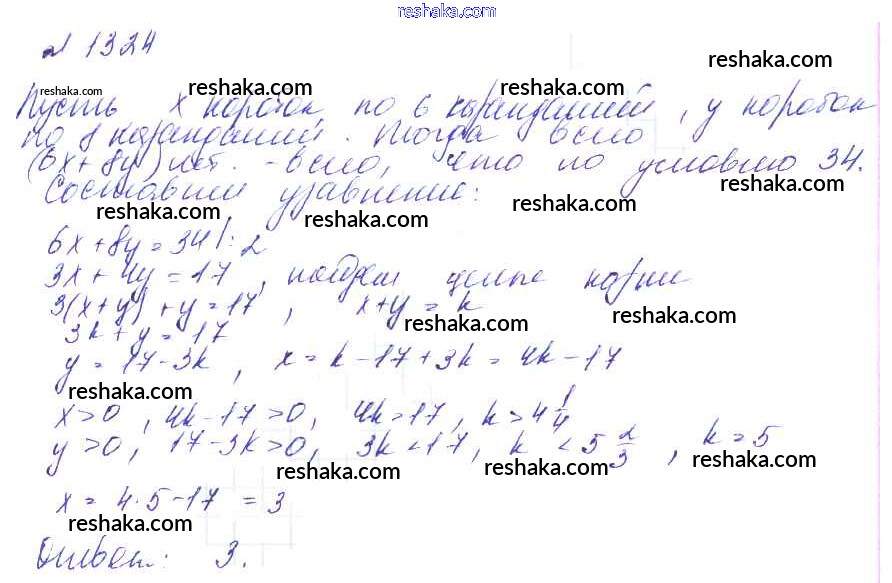 reshaka.com
№ 1324
reshaka.com
reshaka.com
reshaka.com reshaka.com reshaka.com
Пусть x коробок по 6 карандашей, y коробок
по 8 карандашей. Тогда всего
(6x+8y) - всего, что по условию 34.
reshaka.com
Составим уравнение:
reshaka.com reshaka.com reshaka.com
6x+8y=34 |:2
3x+4y=17, найдем целые корни
3(x+y)+y=17, x+y=k
reshaka.com reshaka.com
3k+y=17
y=17-3k, x=k-17+3k=4k-17
reshaka.com
x>0, 4k-17>0, 4k>17, k>4 1/4
y>0, 17-3k>0, 3k<17, k<5 2/3, k=5
reshaka.com reshaka.com reshaka.com
x=4·5-17=3
reshaka.com
Ответ: 3.